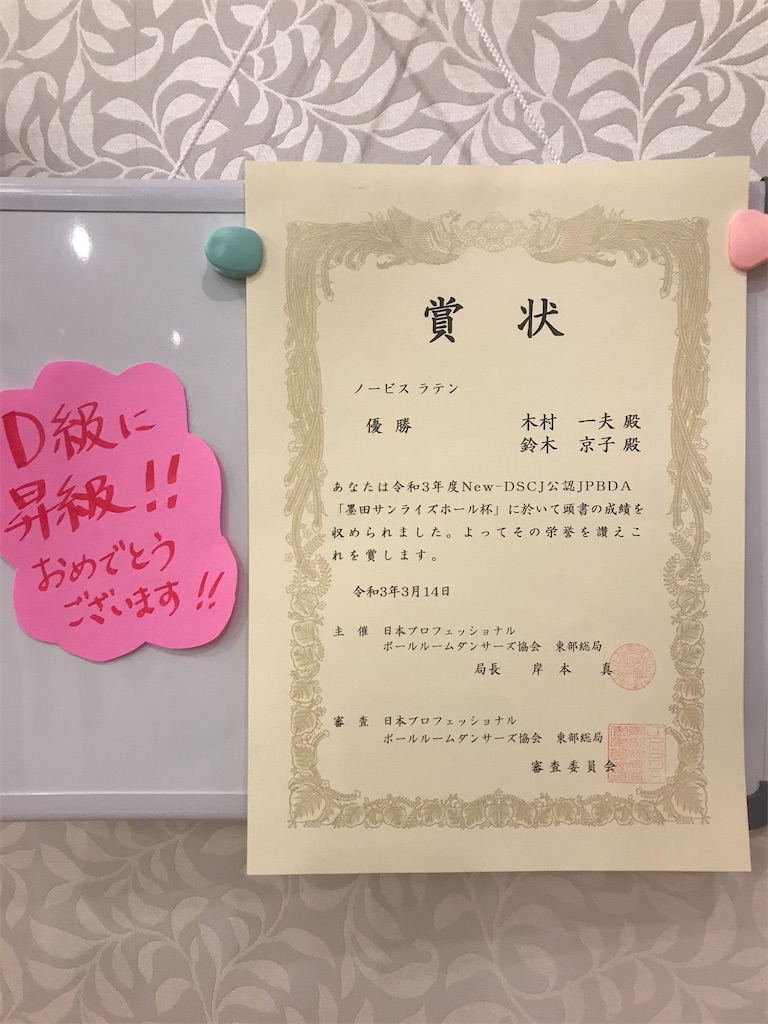 D級に
昇級!!
おめでとう
ございます!!
賞 状
ノービス ラテン
優 勝
木村 一夫 殿
鈴木 京子 殿
あなたは令和3年度New-DSCJ公認JPBDA
「墨田サンライズホール杯」に於いて頭書の成績を
収められました。よってその栄誉を讃えこ
れを賞します。
令和3年3月14日
主 催 日本プロフェッショナル
ボールルームダンサーズ協会 東部総局
局長 岸 本 真
審 査 日本プロフェッショナル
ボールルームダンサーズ協会 東部総局
審査委員会